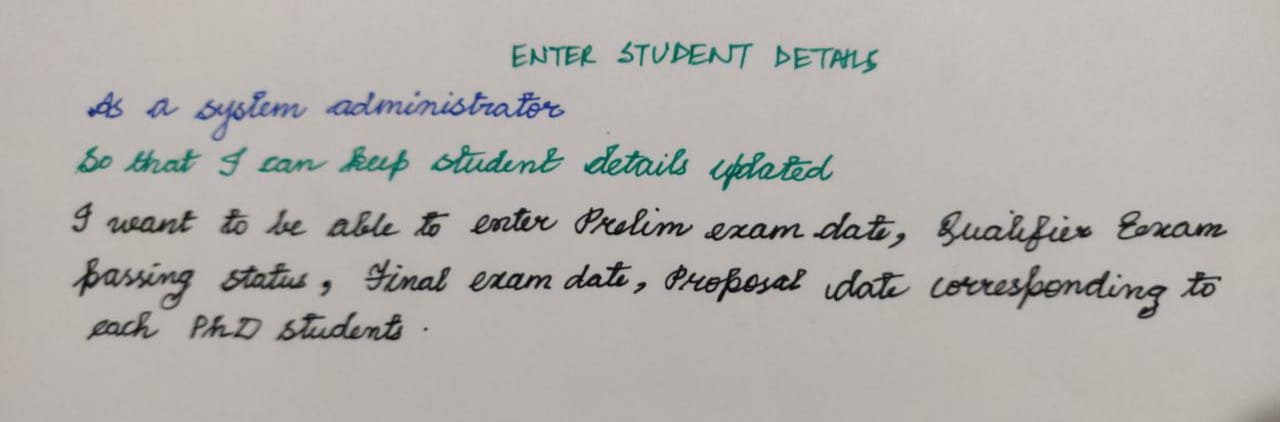 ENTER STUDENT DETAILS
As a system administrator
So that I can keep student details updated
I want to be able to enter Prelim exam date, Qualifier Exam
passing status, Final exam date, Proposal date corresponding to
each PhD students.